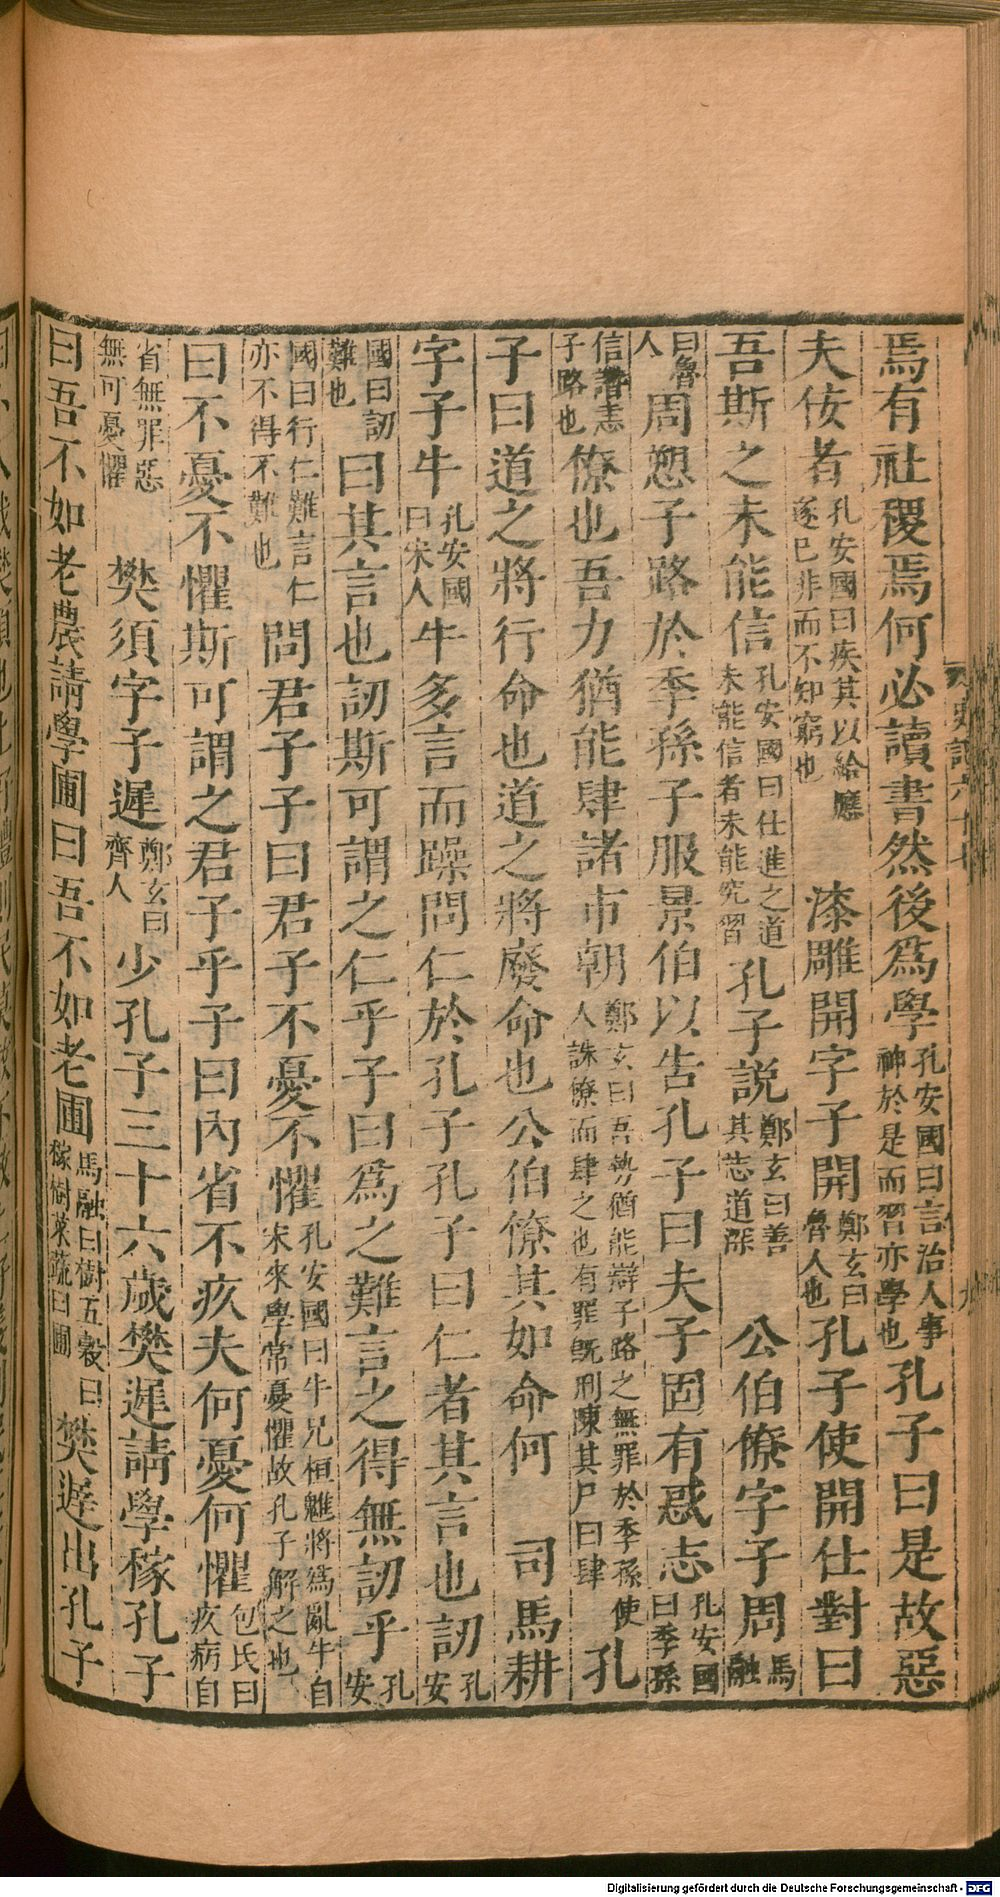 焉有社稷焉何必讀書然後爲學孔安國曰言治人事神於是而習亦學也孔子曰是故惡
夫佞者孔安國曰疾其以給應遂已非而不知窮也　漆雕開字子開鄭玄曰魯人也孔子使開仕對曰
吾斯之未能信孔安國曰仕進之道未能信者未能究習孔子説鄭玄曰善其志道深　公伯僚字子周馬融
曰魯人周愬子路於季孫子服景伯以告孔子曰夫子固有惑志孔安國曰季孫
信讒恚子路也僚也吾力猶能肆諸市朝鄭玄曰吾勢猶能辯子路之無罪於季孫使人誅僚而肆之也有罪旣刑陳其尸曰肆孔
子曰道之將行命也道之將廢命也公伯僚其如命何　司馬耕
字子牛孔安國曰宋人牛多言而躁問仁於孔子孔子曰仁者其言也訒孔安
國曰訒難也曰其言也訒斯可謂之仁乎子曰爲之難言之得無訒乎孔安
國曰行仁難言仁亦不得不難也問君子子曰君子不憂不懼孔安國曰牛兄桓魋將爲亂牛自宋來學常憂懼故孔子解之也
曰不憂不懼斯可謂之君子乎子曰內省不疚夫何憂何懼包氏曰疚病自
省無罪惡無可憂懼　樊須字子遲鄭玄曰齊人少孔子三十六歲樊遲請學稼孔子
曰吾不如老農請學圃曰吾不如老圃馬融曰樹五穀曰稼樹菜蔬曰圃樊遲出孔子
Digitalisierung gefördert durch die Deutsche Forschungsgemeinschaft - DFG